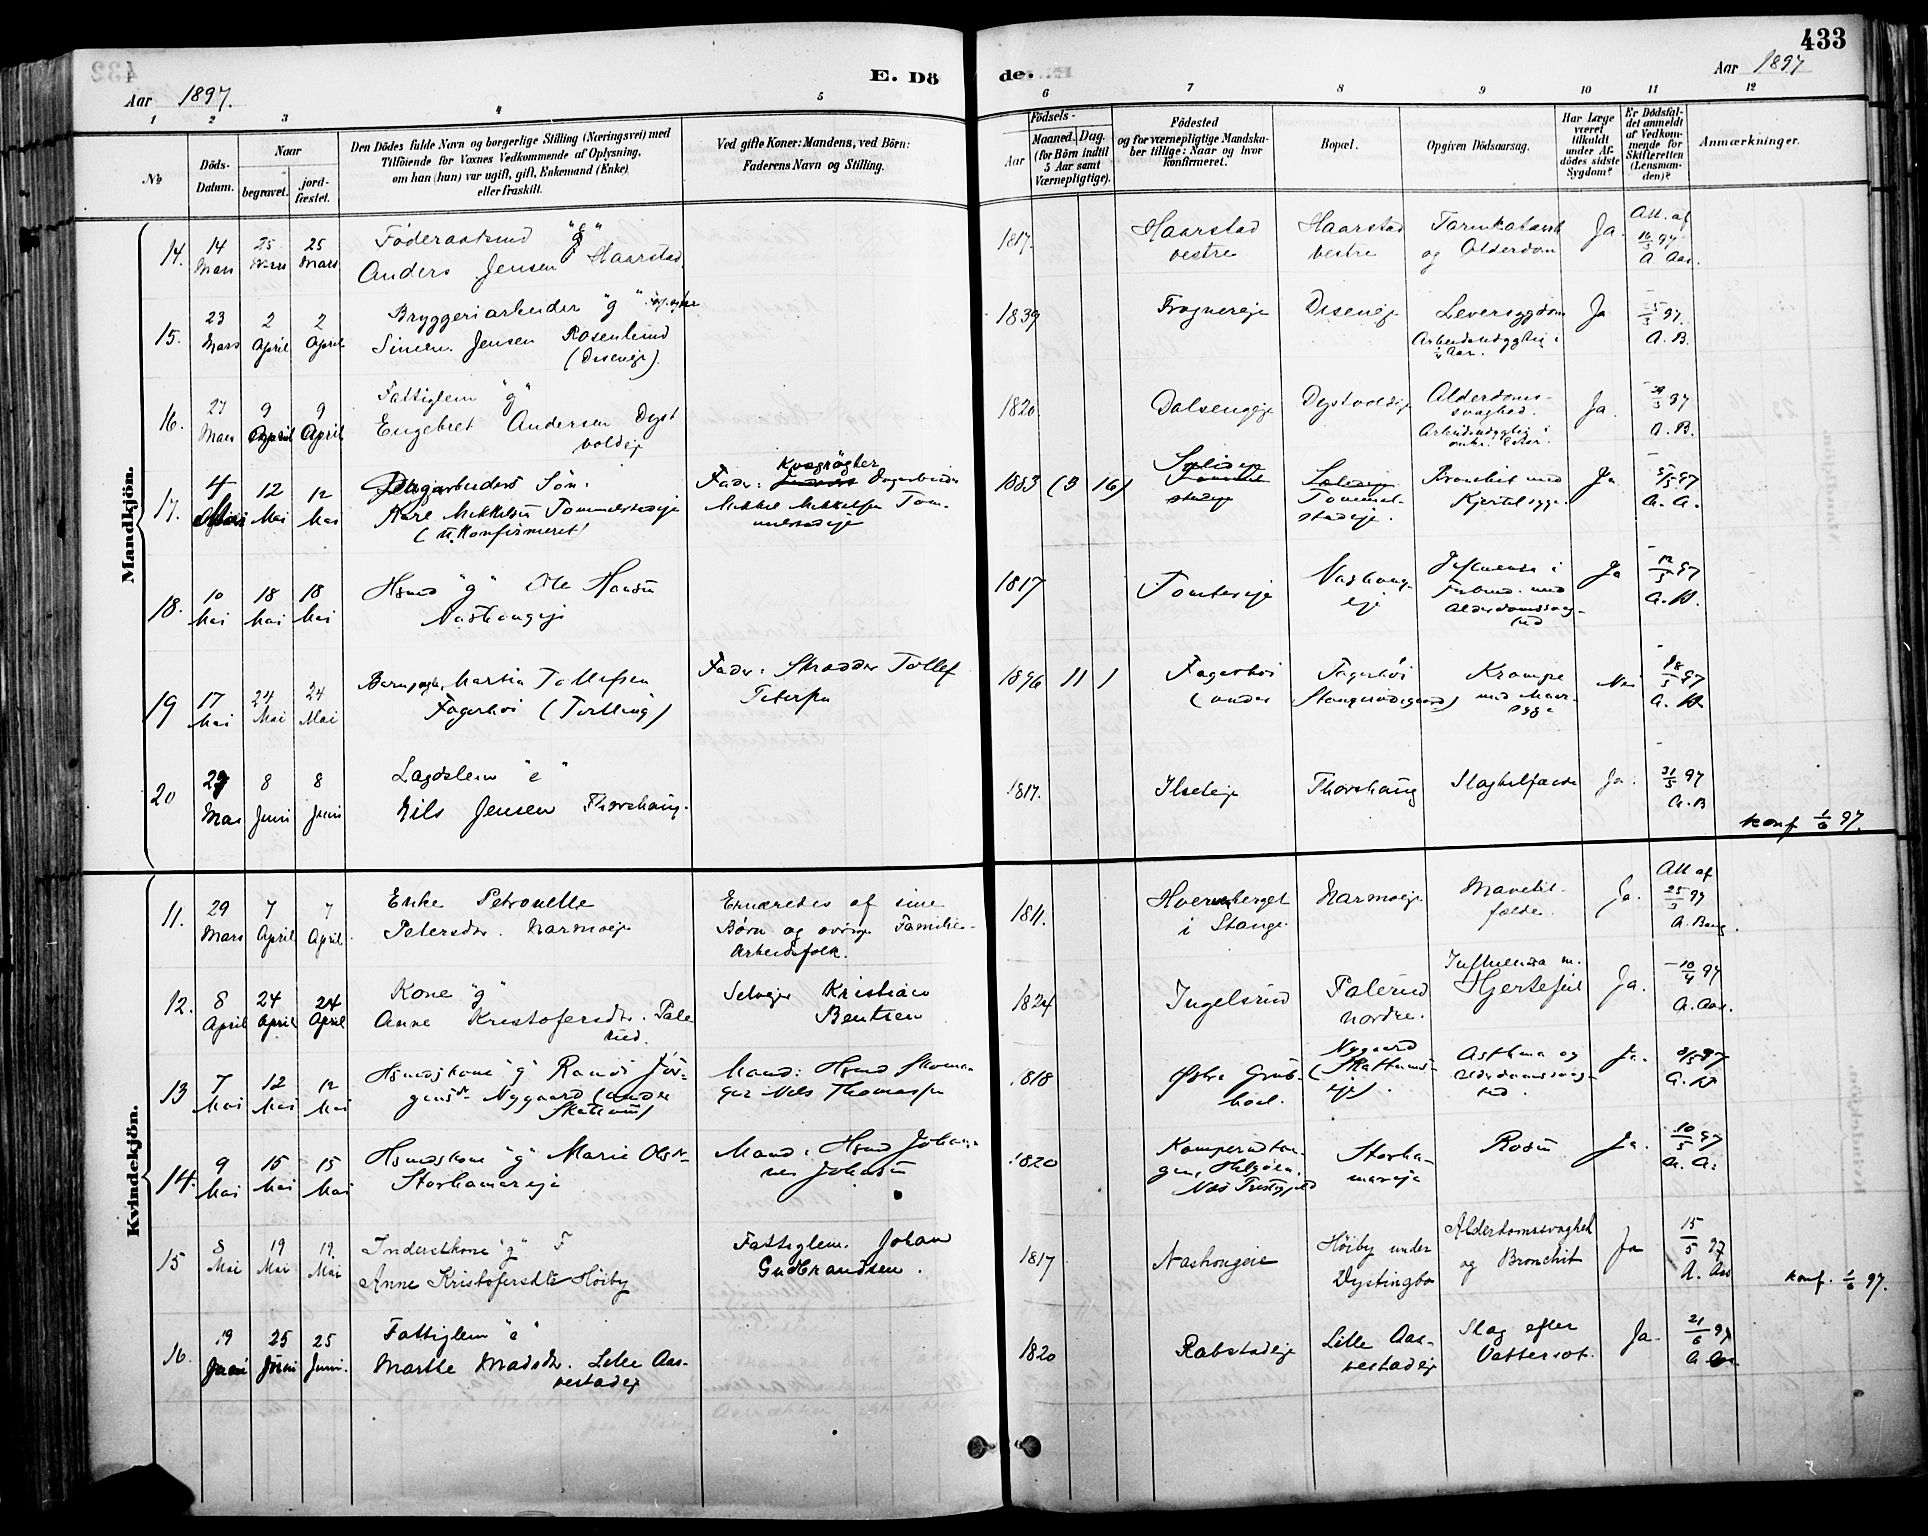 433
E. Döde.
Aar 1897.
Aar 1897
1 2 3 4 5 6 7 8 9 10 11 12
No
Döds-Datum.
Naar
begravet.
jord-fæstet.
Den Dödes fulde Navn og borgerlige Stilling (Næringsvei) med
Tilföiende for Voxnes Vedkommende af Oplysning,
om han (hun) var ugift, gift, Enkemand (Enke)
eller fraskilt.
Ved gifte Koner: Mandens, ved Börn:
Faderens Navn og Stilling.
Födsels-
Aar
Maaned. Dag.
(for Börn indtil
5 Aar samt
Værnepligtige).
Födested
og for værnepligtige Mandska-
ber tillige: Naar og hvor
konfirmeret.
Bopæl.
Opgiven Dödsaarsag.
Har Læge
været
tilkaldt
under Af-
dödes sidste
Sygdom?
Er Dödsfal-
det anmeldt
af Vedkom-
mende for
Skifteretten
(Lensman-
den)?
Anmærkninger.
Mandkjön.
14. 14 Mars 25 Mars 25 Mars Föderaadsmd "g" Anders Jensen Haarstad. 1817. Haarstad vestre Haarstad vestre Tarmkatarrh og Alderdom Ja. Att. af 16/3 97 A. Aas.
15. 23 Mars 2 April 2 April Bryggeriarbeider "g" Simen Jensen Rosenlund (Diseneje). 1839 Frognereje Diseneje Leversygdom Arbeidsudygtig i Aar. Ja A. B.
16. 27 Mars 9 April 9 April Fattiglem "g" Engebret Andersen Dyst voldeje 1820. Dalsengeje Dystvoldeje Alderdoms-svaghed. Arbeidsudygtig i Ja. 29/3 97 A. B.
17. 4 Mai 12 Mai 12 Mai Dagarbeiders Sön. Karl Mikkelsen Tommelstadeje (u. Konfirmeret) Fader: Kvægrögter Dagarbeider Mikkel Mikkelsen Tommelstadeje 1883 (3 16) Tommelstadeje Tommelstadeje. Bronchit med Kjertelsyge. Ja 5/5 97 A. A.
18. 10 Mai 18 Mai 18 Mai Hsmd "g" Ole Hansen Nashaugeje 1817 Tomtereje Nashaugeje Influensa i Forbind. med Alderdomssvaghed Ja 12/5 97 A. B.
19 17 Mai 24 Mai 24 Mai Barnepige Martia Tollefsen Fagerhöi (Tvilling) Fader: Skrædder Tollef Petersen 1896 11 1 Fagerhöi (under Fagerhöi Stangerødegaard) Krampe med Mave-syge Nei 18/5 97 A. B.
20 29 Mai 8 Juni 8 Juni Lægdslem "e" Nils Jensen Thorshaug. 1817. Ilseleje Thorshaug Slagtilfælde Ja. 31/5 97 A. B
konf 1/6 97.
Kvindekjön.
11. 29 Mars 7 April 7 April. Enke Petronelle Petersdr. Narmoeje Ernæredes af sine Børn og øvrige Familie- Arbeidsfolk. 1811. Hverveberget i Stange. Narmoeje Mavetil-fælde. Ja. Att af 25/3 97 A. Bang.
12. 8 April 24 April 24 April Kone "g" Anne Kristofersdr. Palerud. Selveier Kristian Bentsen 1824 Ingelsrud Palerud nordre. Influensa m. Hjertefeil Ja. 10/4 97 A. Aas.
13 7 Mai 12 Mai 12 Mai Hsmdskone "g" Randi Jörgensdr. Nygaard (under Skattum) Mand: Hsmd Skomager Nils Thomassen 1818 Østre Grubhoel. Nygaard (Skattumseje). Asthma og Alderdomssvaghed. Ja. 8/5 97 A. B
14. 9 Mai 15 Mai 15 Mai Hsmdskone "g" Marie Olsdr. Storhamareje Mand: Hsmd Johannes Johnsen 1820 Kamperudtangen, Helgöen, Næs Prestegjeld Storhamareje Rosen Ja. 10/5 97 A. A.
15 8 Mai 19 Mai 19. Mai Inderstkone "g" Anne Kristofersdtr Höiby Fattiglem. Johan Gudbrandsen. 1817 Nashougeie Höiby under Dystingbo Alderdomssvaghed og Bronchit Ja 15/5 97 A. Aas
konf. 1/6 97.
16. 19 Juni 25 Juni 25 Juni. Fattiglem "e" Marthe Madsdr. Lille Aarvestadeje 1820 Rabstadeje Lille Aarvestadeje Slag efter Vattersot. Ja. 21/6 97 A. Aas